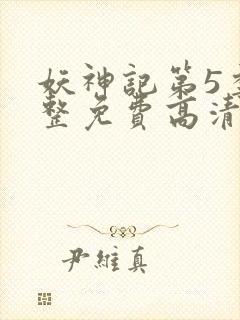 妖神記第5季
整免費高清
尹維真